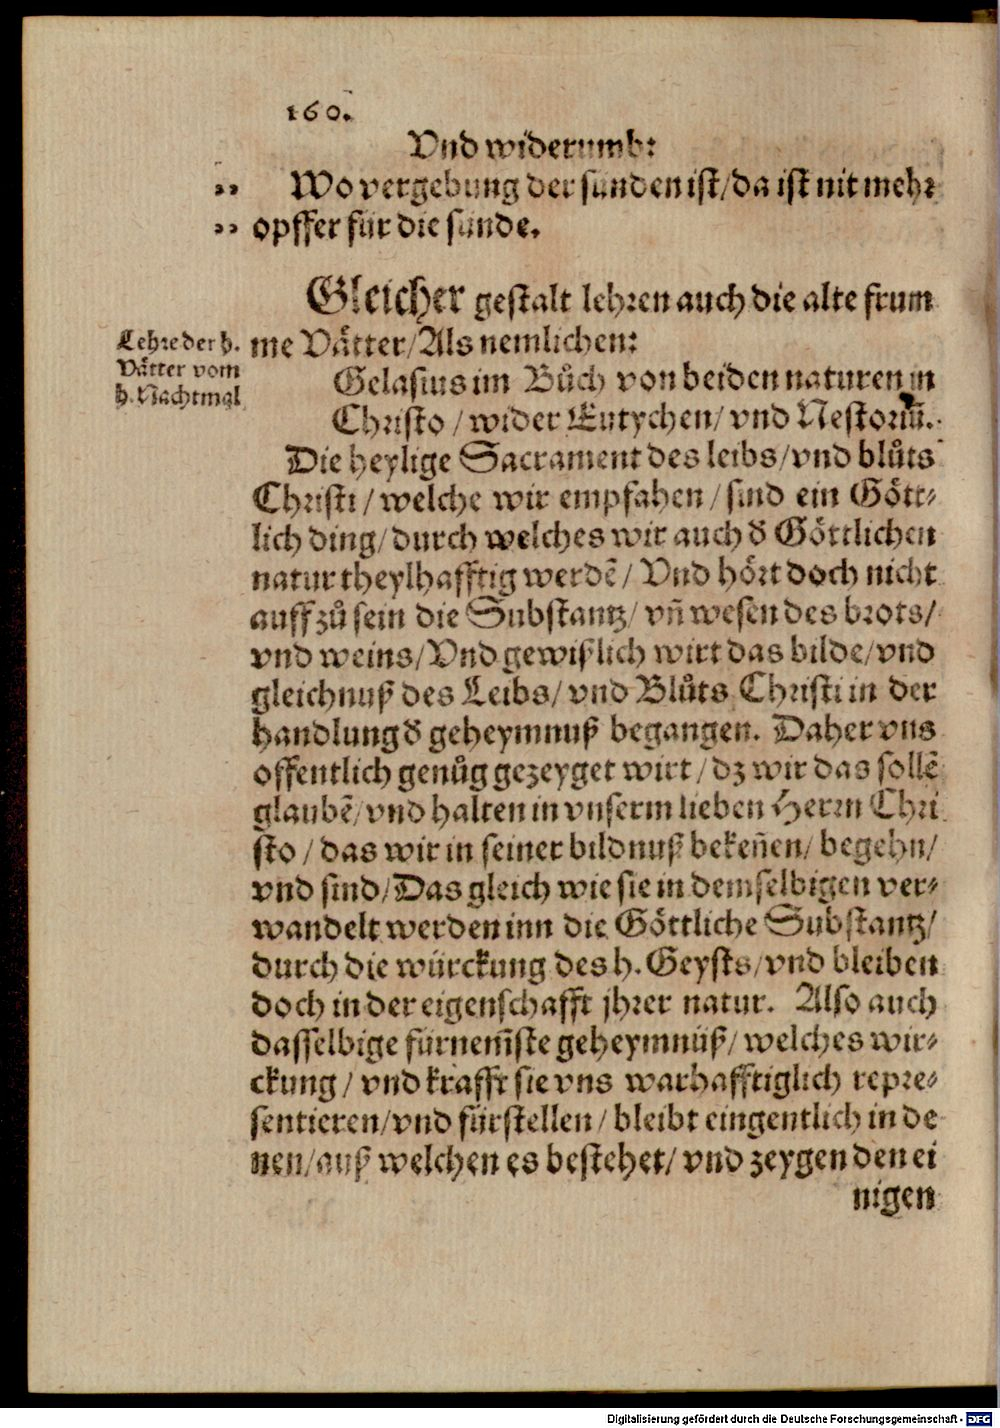 160.
Vnd widerumb:
„ Wo vergebung der sunden ist/da ist nit mehr
„ opffer für die sunde.
Gleicher gestalt lehren auch die alte frum
Lehre der h.
Vaͤtter vom
h. Nachtmal
me Vaͤtter/Als nemlichen:
Gelasius im Bůch von beiden naturen in
Christo / wider Eutychen/ vnd Nestoriū.
Die heylige Sacrament des leibs/vnd blůts
Christi / welche wir empfahen / sind ein Goͤtt⸗
lich ding/ durch welches wir auch d̕ Goͤttlichen
natur theylhafftig werdē/ Vnd hoͤrt doch nicht
auff zů sein die Substantz/ vn̄ wesen des brots/
vnd weins/Vnd gewißlich wirt das bilde/vnd
gleichnuß des Leibs/ vnd Blůts Christi in der
handlung d̕ geheymnuß begangen. Daher vns
offentlich genůg gezeyget wirt / dz wir das sollē
glaubē/ vnd halten in vnserm lieben Herrn Chri
sto / das wir in seiner bildnuß beken̄en/ begehn/
vnd sind/ Das gleich wie sie in demselbigen ver⸗
wandelt werden inn die Goͤttliche Substantz/
durch die würckung des h. Geysts/vnd bleiben
doch in der eigenschafft jhrer natur. Also auch
dasselbige fürnem̄ste geheymnuß/ welches wir⸗
ckung / vnd krafft sie vns warhafftiglich repre⸗
sentieren/vnd fürstellen / bleibt eingentlich in de
nen/auß welchen es bestehet/ vnd zeygen den ei
nigen
Digitalisierung gefördert durch die Deutsche Forschungsgemeinschaft - DFG